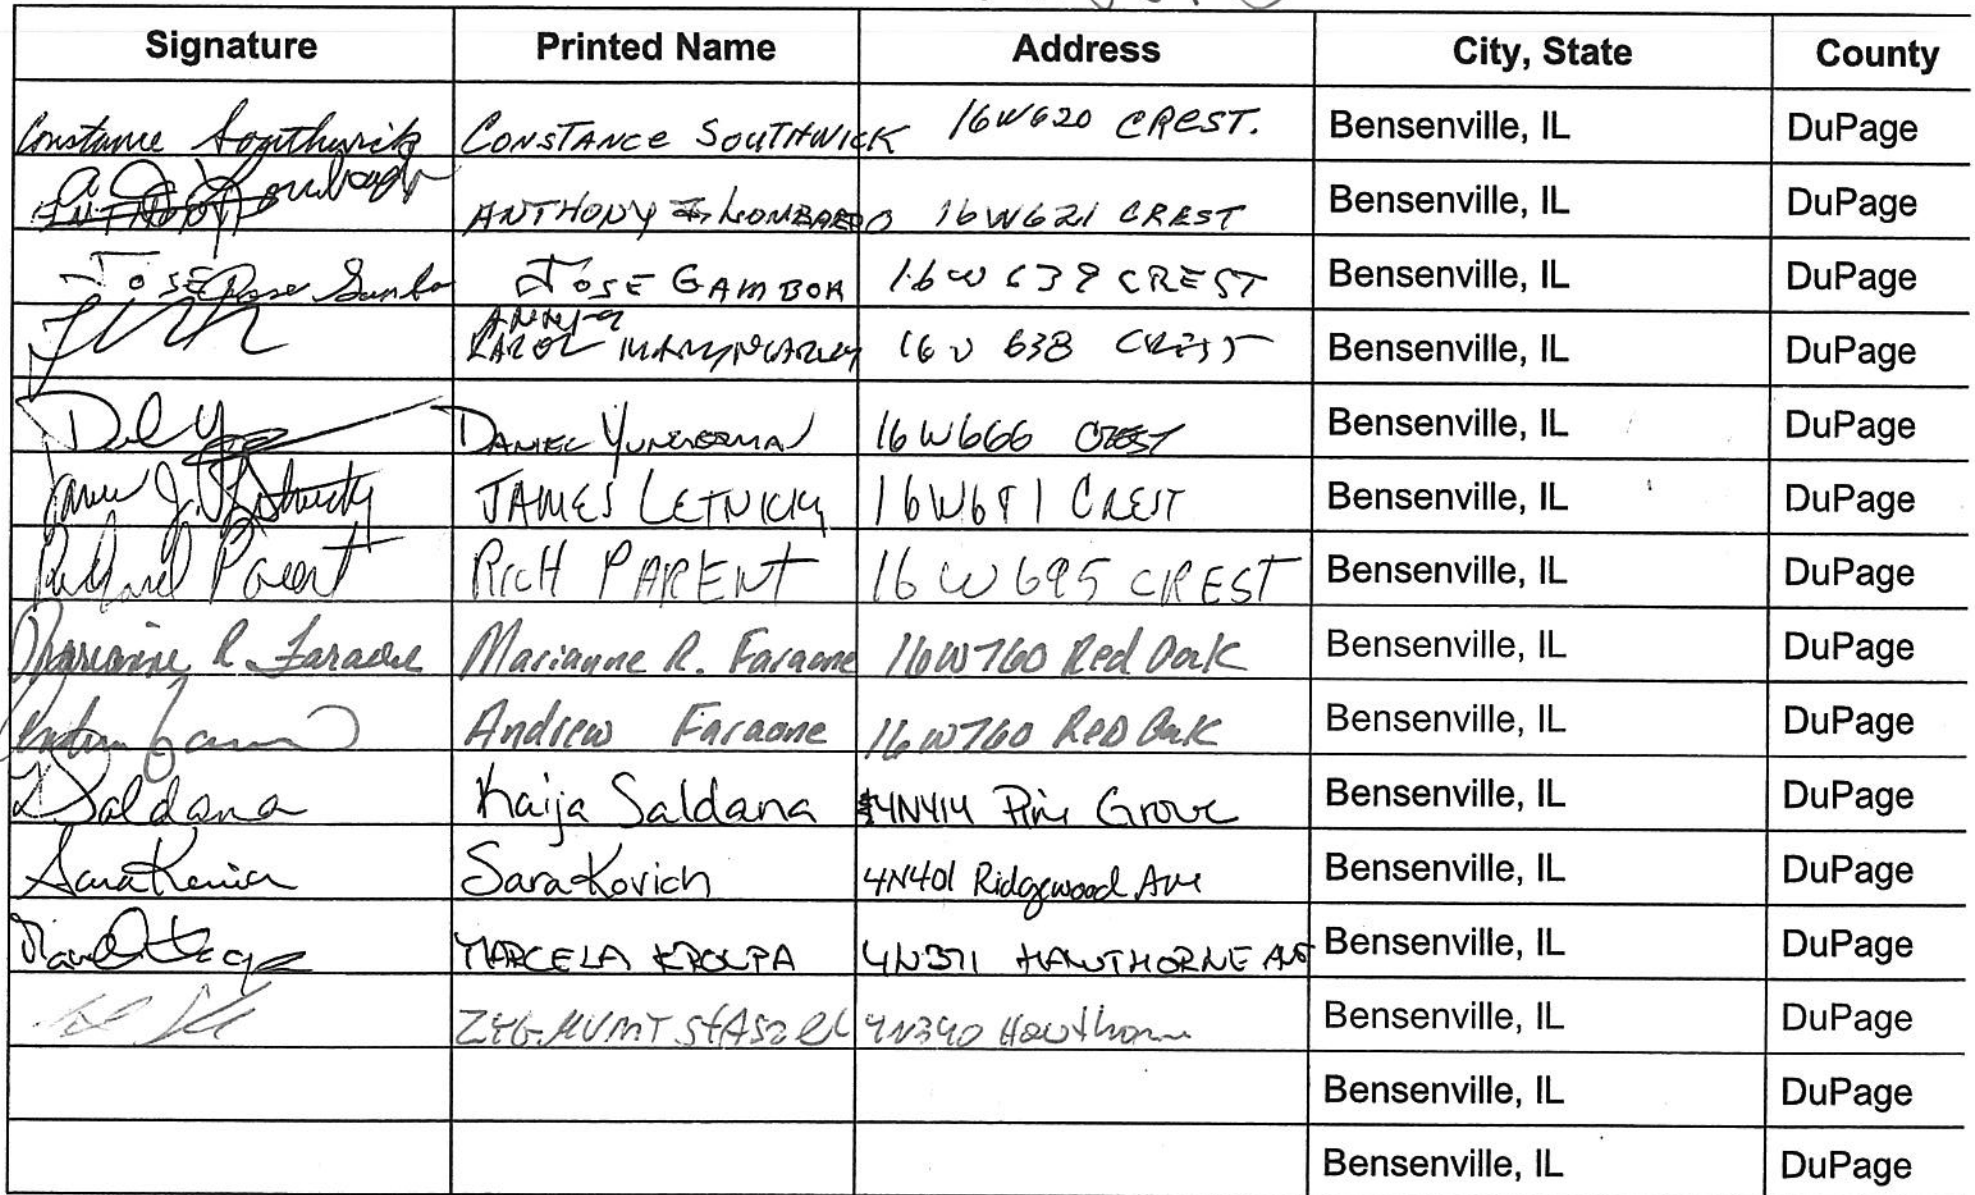 Signature Printed Name Address City, State County
Constance Southwick CONSTANCE SOUTHWICK 16W620 CREST. Bensenville, IL DuPage
ANTHONY ANTHONY J. LOMBARDO 16W621 CREST Bensenville, IL DuPage
JOSE JOSE GAMBOA 16W639 CREST Bensenville, IL DuPage
KAROL 16W638 CREST Bensenville, IL DuPage
DANIEL 16W666 CREST Bensenville, IL DuPage
JAMES LETNICKY CREST Bensenville, IL DuPage
Richard Parent RICH PARENT 16W695 CREST Bensenville, IL DuPage
Marianne R. Faraone Marianne R. Faraone 16W760 Red Oak Bensenville, IL DuPage
Andrew Faraone 16W760 Red Oak Bensenville, IL DuPage
Saldana Kaija Saldana 4N414 Pine Grove Bensenville, IL DuPage
Sara Kovich 4N401 Ridgewood Ave Bensenville, IL DuPage
MARCELA KROUPA 4N371 HAWTHORNE AVE Bensenville, IL DuPage
4N340 Hawthorne Bensenville, IL DuPage
Bensenville, IL DuPage
Bensenville, IL DuPage